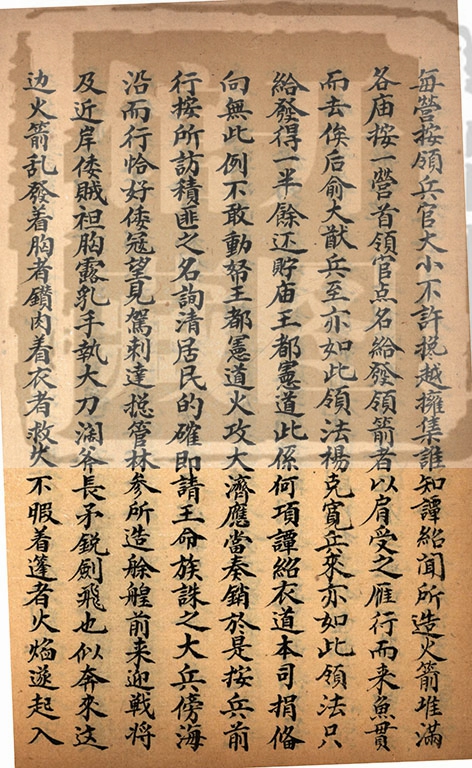 每營按領兵官大小不許搃越擁集誰知譚紹聞所造火箭堆滿
各庙按一營首領官点名給發領箭者以肩受之雁行而来魚貫
而去俟后俞大猷兵至亦如此領法楊克寬兵來亦如此領法只
給發得一半餘还貯庙王都憲道此係何項譚紹衣道本司捐俻
向無此例不敢動帑王都憲道火攻大濟應當奏銷於是按兵前
行按所訪積匪之名詢清居民的確即請王命族誅之大兵傍海
沿而行恰好倭寇望見駕剌達搃管林参所造艅艎前来迎戦将
及近岸倭賊袒胸露乳手執大刀濶斧長矛鋭劍飛也似奔來这
边火箭乱發着胸者鑽肉着衣者救火不暇着蓬者火焰逐起入